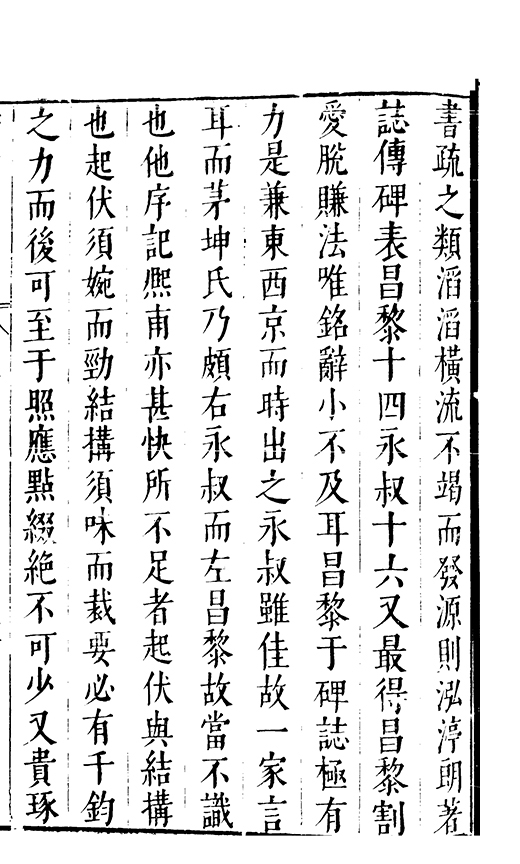 書疏之類滔滔橫流不竭而發源則泓渟朗著
誌傳碑表昌黎十四永叔十六又最得昌黎割
愛脫賺法唯銘辭小不及耳昌黎于碑誌極有
力是兼東西京而時出之永叔雖佳故一家言
耳而茅坤氏乃頗右永叔而左昌黎故當不識
也他序記熙甫亦甚快所不足者起伏與結構
也起伏須婉而勁結構須味而裁要必有千鈞
之力而後可至于照應點綴絕不可少又貴琢